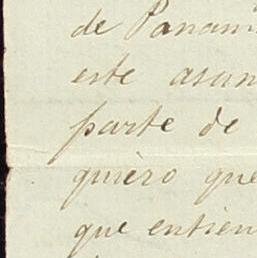 de Panam
este asun
parte de
quiero que
que entien